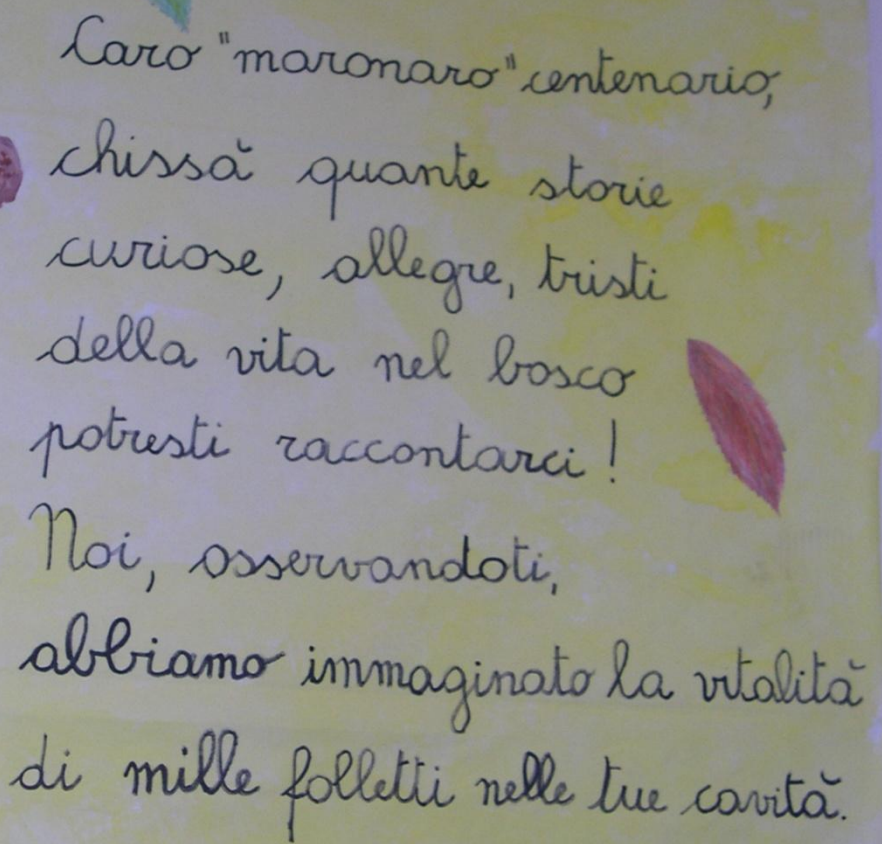 Caro "maronaro" centenario,
chissà quante storie
curiose, allegre, tristi
della vita nel bosco
potresti raccontarci!
Noi, osservandoti,
abbiamo immaginato la vitalità
di mille folletti nelle tue cavità.